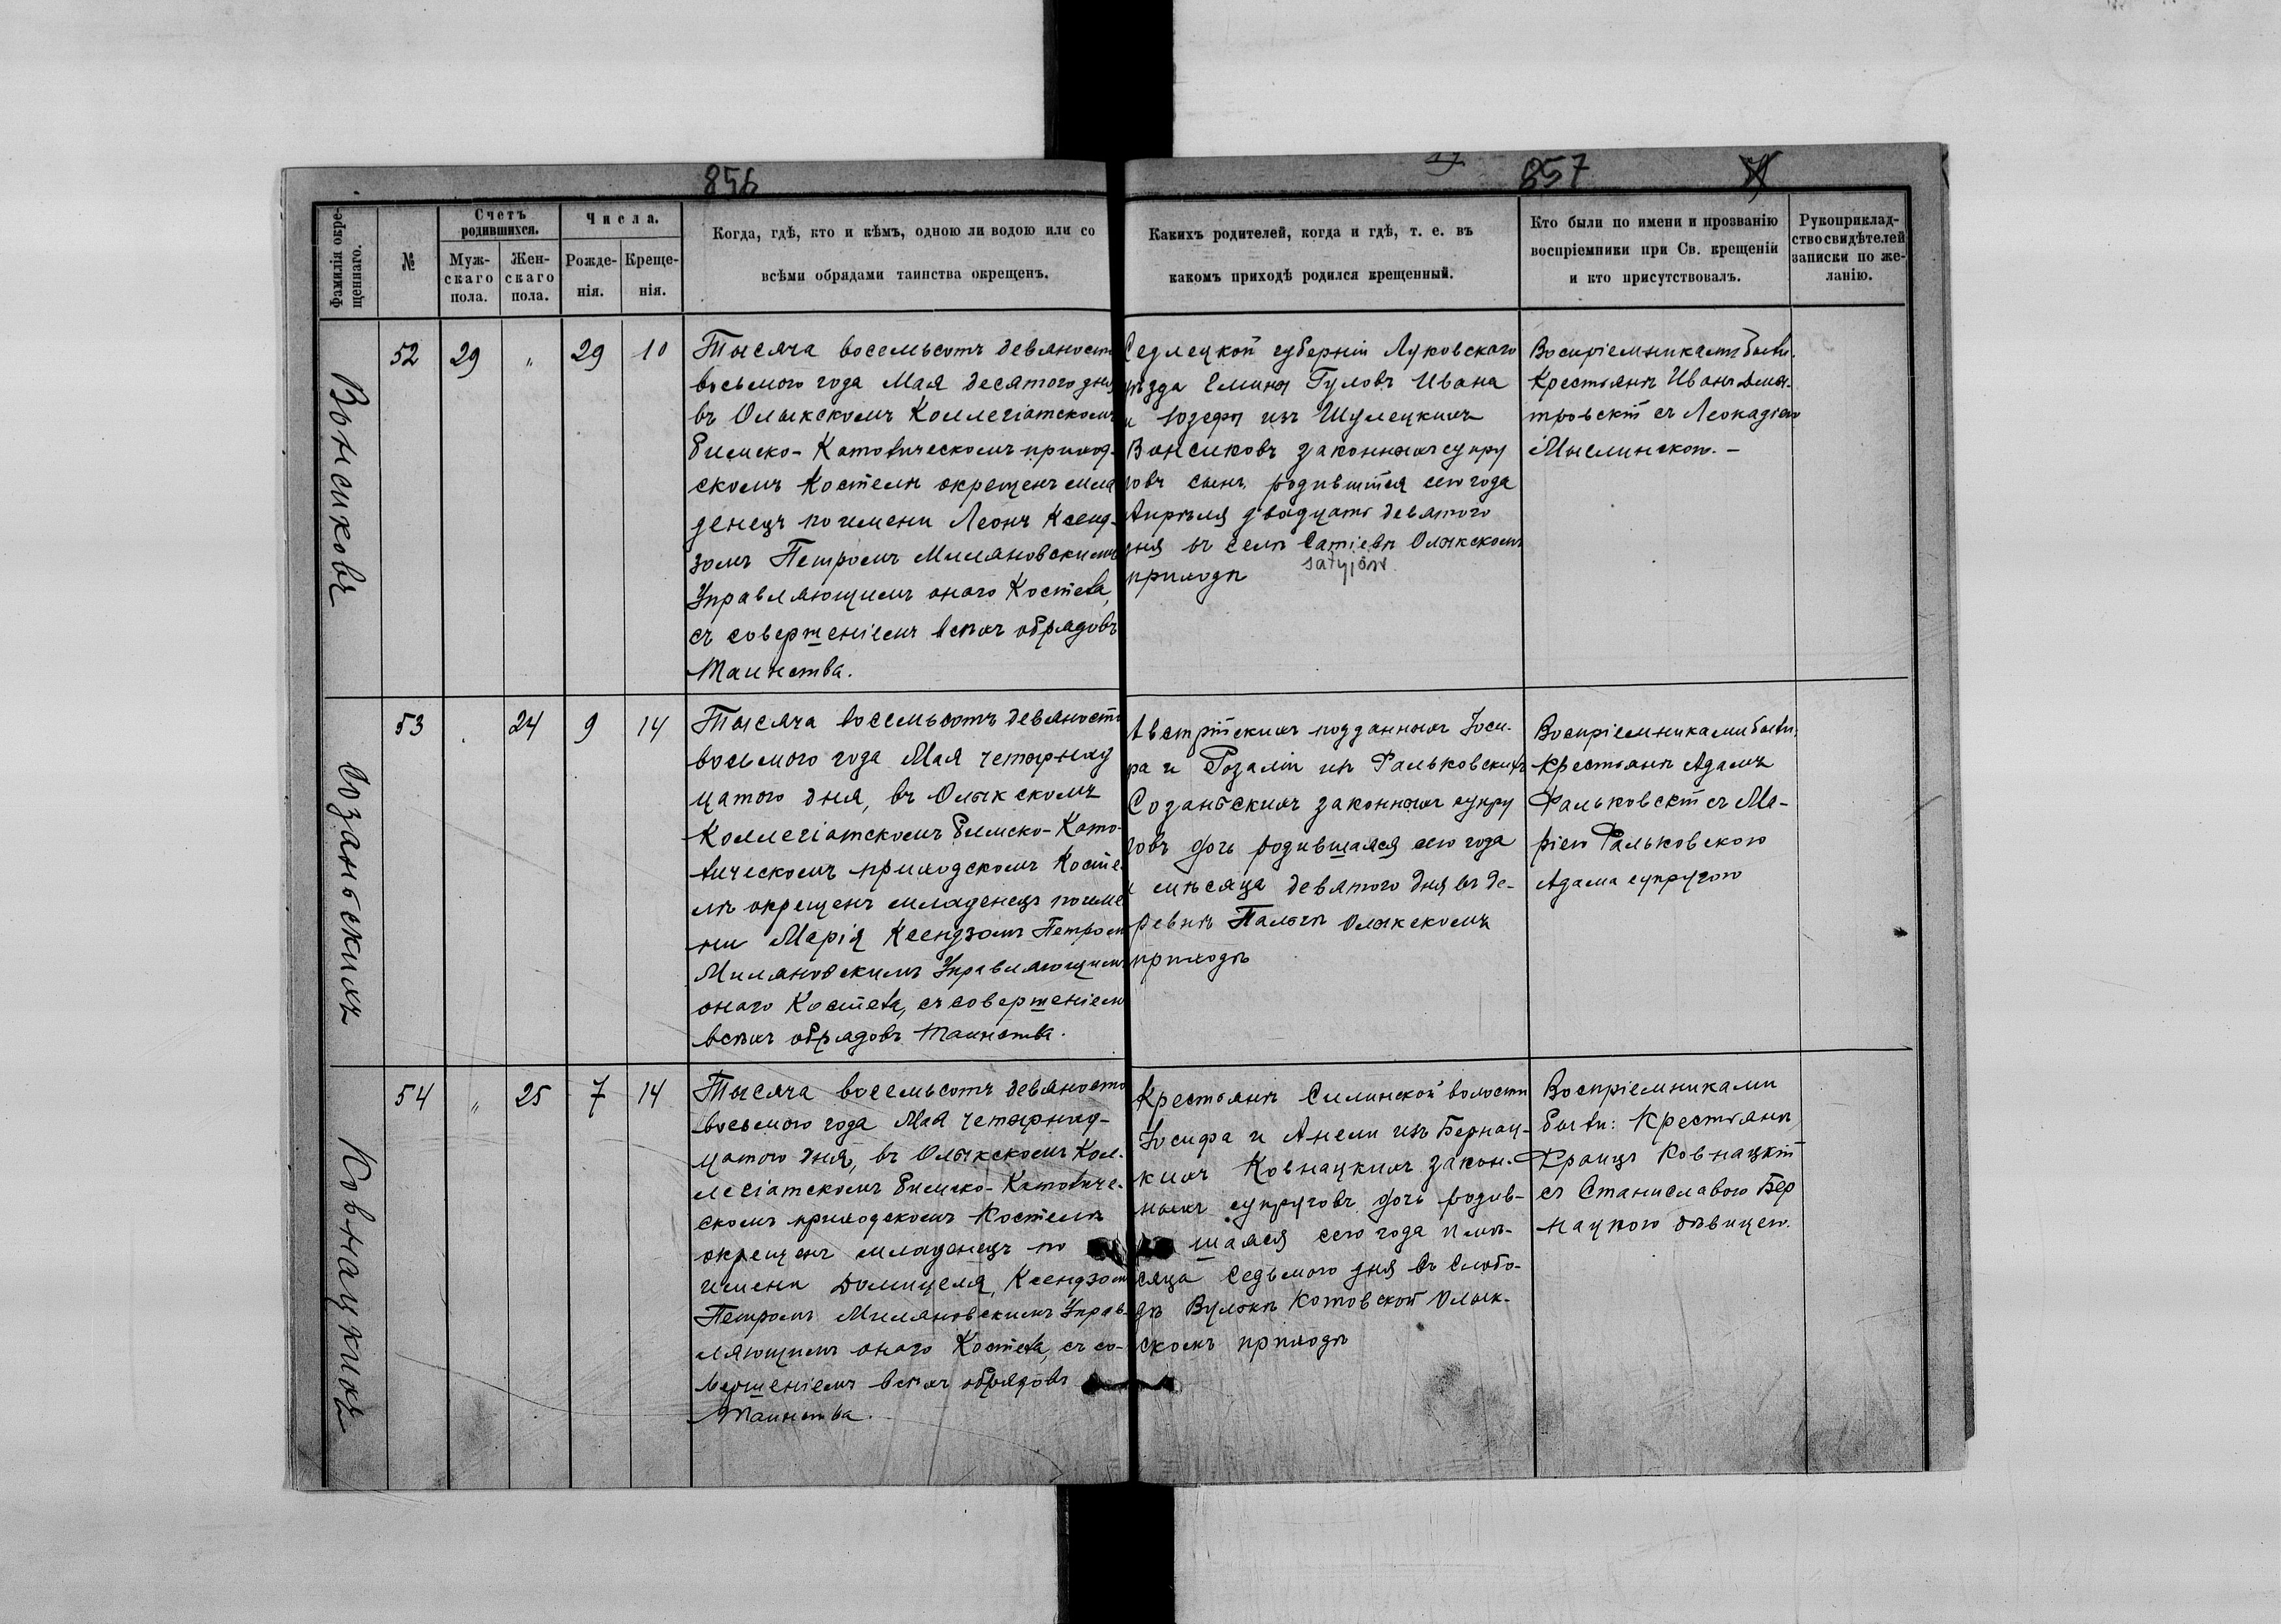 856
Фамилія окре-
щеннаго.
№
Счетъ
родившихся.
Муж-
скаго
пола.
Жен-
скаго
пола.
Числа.
Рожде-
нія.
Креще-
нія.
Когда, гдѣ, кто и кѣмъ, одною ли водою или со
всѣми обрядами таинства окрещенъ.
857
Какихъ родителей, когда и гдѣ, т. е. въ
какомъ приходѣ родился крещенный.
Кто были по имени и прозванію
воспріемники при Св. крещеніи
и кто присутствовалъ.
Рукоприклад-
ство свидѣтелей
записки по же-
ланію.
Вонсиковъ
52
29
"
29
10
Тысяча восемьсотъ девяносто
восьмого года Мая десятого дня
въ Олыкскомъ Коллегіатскомъ
Римско-Католическомъ приход-
скомъ Костелѣ окрещенъ мла
денецъ по имени Леонъ Ксенд-
зомъ Петромъ Миляновскимъ
Управляющимъ онаго Костела,
съ совершеніемъ всѣхъ обрядовъ
Таинства.
Седлецкой губерніи Луковскаго
уѣзда Гмины Гуловъ Ивана
и Юзефы изъ Шулецкихъ
Вонсиковъ законныхъ супру
говъ сынъ родившійся сего года
Апрѣля двадцать девятого
дня въ селѣ Сатіевѣ Олыкскомъ
Satyjów
приходѣ
Воспріемниками были:
Крестьянѣ Иванъ Дми-
тровскій съ Леокадіею
Мыслинской. —
Созаньскихъ
53
.
24
9
14
Тысяча восемьсотъ девяносто
восьмого года Мая четырнад
цатого дня, въ Олыкскомъ
Коллегіатскомъ Римско-Като-
лическомъ приходскомъ Косте-
лѣ окрещенъ младенецъ по име
ни Марія Ксендзомъ Петромъ
Миляновскимъ Управляющимъ
онаго Костела, съ совершеніемъ
всѣхъ обрядовъ Таинства.
Австрійскихъ подданныхъ Іоси-
фа и Розаліи изъ Фальковскихъ
Созаньскихъ законныхъ супру
говъ дочь родившаяся сего года
и мѣсяца девятого дня въ де-
ревнѣ Палычѣ Олыкскомъ
приходѣ
Воспріемниками были:
Крестьянѣ Адамъ
Фальковскій съ Ма-
ріею Фальковскою
Адама супругою
Ковнацкихъ
54
"
25
7
14
Тысяча восемьсотъ девяносто
восьмого года Мая четырнад-
цатого дня, въ Олыкскомъ Кол-
легіатскомъ Римско-Католиче-
скомъ приходскомъ Костелѣ
окрещенъ младенецъ по
имени Домицеля, Ксендзомъ
Петромъ Миляновскимъ Управ-
ляющимъ онаго Костела, съ со-
вершеніемъ всѣхъ обрядовъ
Таинства.
Крестьянъ Силинской волости
Іосифа и Анели изъ Бернац-
кихъ Ковнацкихъ закон-
ныхъ супруговъ дочь родив-
шаяся сего года и мѣ-
сяца седьмого дня въ Слобо-
дѣ Вулькѣ Котовской Олык-
скомъ приходѣ
Воспріемниками
были: Крестьянѣ
Францъ Ковнацкій
съ Станиславою Бер
нацкою дѣвицею.